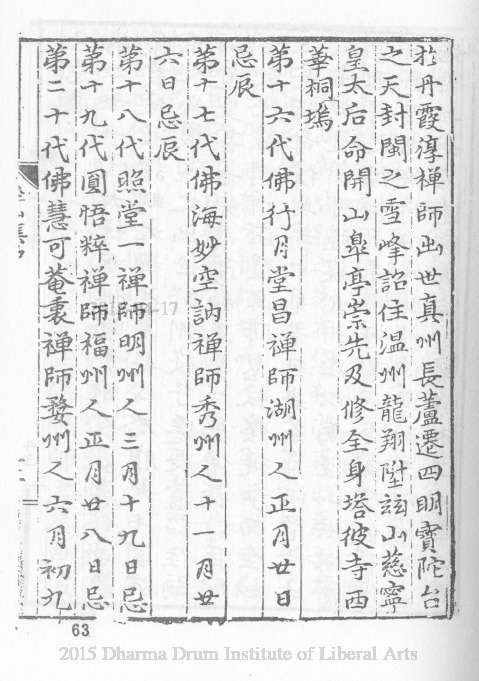 於丹霞淳禪師出世真州長蘆遷四明寶陀台
之天封閩之雪峰詔住温州龍翔陞茲山慈寧
皇太后命開山臯亭崇先及修全身塔彼寺西
華桐塢
第十六代佛行月堂昌禪師湖州人正月廿日
忌辰
第十七代佛海妙空訥禪師秀州人十一月廿
六日忌辰
第十八代照堂一禪師明州人三月十九日忌
第十九代圓悟粹禪師福州人正月廿八日忌
第二十代佛慧可菴衷禪師婺州人六月初九
63
2015 Dharma Drum Institute of Liberal Arts